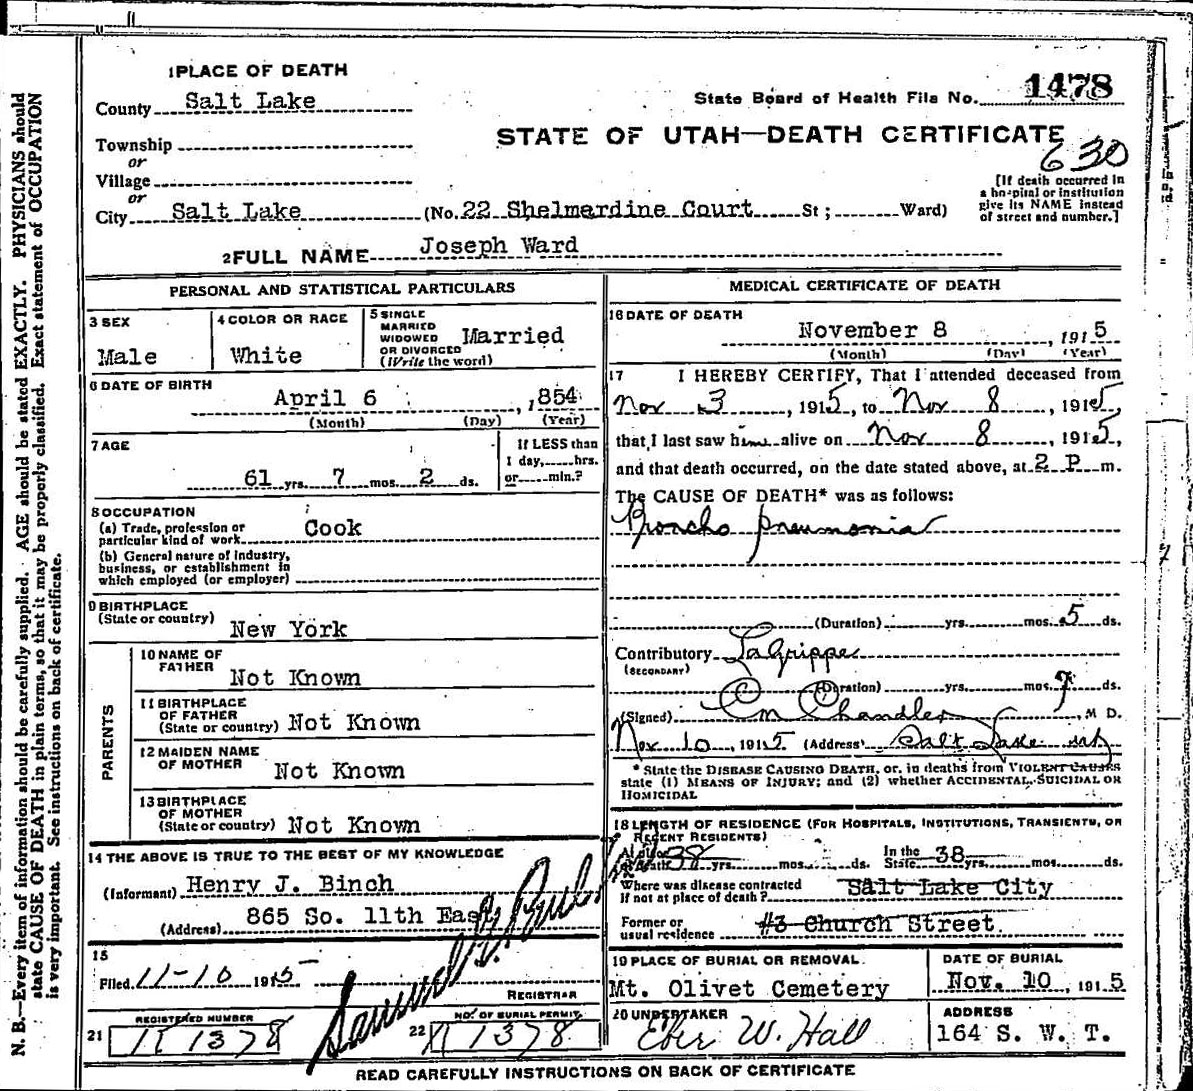 1 PLACE OF DEATH
County Salt Lake
State Board of Health File No. 1478
STATE OF UTAH—DEATH CERTIFICATE
630
Township
or
Village
or
City Salt Lake (No. 22 Shelmardine Court St; Ward)
[If death occurred in
a hospital or institution
give its NAME instead
of street and number.]
2 FULL NAME Joseph Ward
PERSONAL AND STATISTICAL PARTICULARS
3 SEX
Male
4 COLOR OR RACE
White
5 SINGLE
MARRIED
WIDOWED
OR DIVORCED
(Write the word)
Married
6 DATE OF BIRTH
April 6, 1854
(Month) (Day) (Year)
7 AGE
61 yrs. 7 mos. 2 ds.
If LESS than
1 day, hrs.
or min.?
8 OCCUPATION
(a) Trade, profession or
particular kind of work Cook
(b) General nature of industry,
business, or establishment in
which employed (or employer)
9 BIRTHPLACE
(State or country) New York
PARENTS
10 NAME OF
FATHER Not Known
11 BIRTHPLACE
OF FATHER
(State or country) Not Known
12 MAIDEN NAME
OF MOTHER Not Known
13 BIRTHPLACE
OF MOTHER
(State or country) Not Known
14 THE ABOVE IS TRUE TO THE BEST OF MY KNOWLEDGE
(Informant) Henry J. Binch
(Address) 865 So. 11th East
15
Filed 11-10 1915
Samuel G.
REGISTRAR
21 REGISTERED NUMBER
1378
22 NO. OF BURIAL PERMIT
1378
MEDICAL CERTIFICATE OF DEATH
16 DATE OF DEATH
November 8, 1915
(Month) (Day) (Year)
17 I HEREBY CERTIFY, That I attended deceased from
Nov 3, 1915, to Nov 8, 1915,
that I last saw him alive on Nov 8, 1915,
and that death occurred, on the date stated above, at 2 P m.
The CAUSE OF DEATH* was as follows:
Broncho pneumonia
(Duration) yrs. mos. 5 ds.
Contributory LaGrippe
(SECONDARY)
(Duration) yrs. mos. ds.
(Signed) C M Chandler, M D.
Nov 10, 1915 (Address) Salt Lake
*State the DISEASE CAUSING DEATH, or, in deaths from VIOLENT CAUSES
state (1) MEANS OF INJURY; and (2) whether ACCIDENTAL, SUICIDAL OR
HOMICIDAL
18 LENGTH OF RESIDENCE (FOR HOSPITALS, INSTITUTIONS, TRANSIENTS, OR
RECENT RESIDENTS)
38 yrs. mos. ds. In the State 38 yrs. mos. ds.
Where was disease contracted
If not at place of death? Salt Lake City
Former or
usual residence #3 Church Street.
19 PLACE OF BURIAL OR REMOVAL
Mt. Olivet Cemetery
DATE OF BURIAL
Nov. 10, 1915
20 UNDERTAKER
Eber W. Hall
ADDRESS
164 S. W. T.
READ CAREFULLY INSTRUCTIONS ON BACK OF CERTIFICATE
N. B.—Every item of information should be carefully supplied. AGE should be stated EXACTLY. PHYSICIANS should
state CAUSE OF DEATH in plain terms, so that it may be properly classified. Exact statement of OCCUPATION
is very important. See instructions on back of certificate.